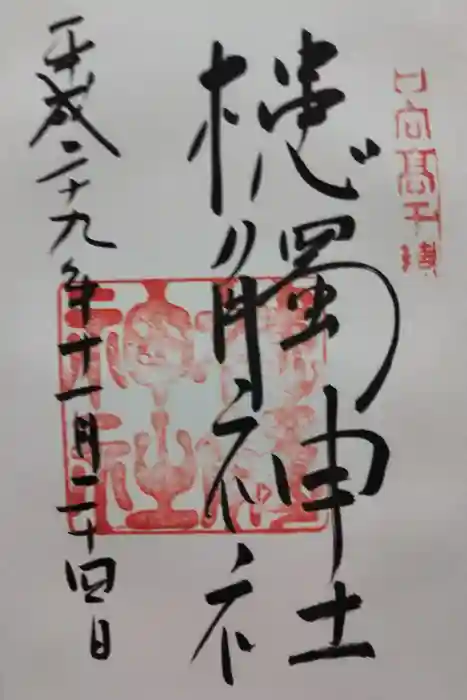 日向髙千穂
槵觸神社
平成二十九年十一月二十四日